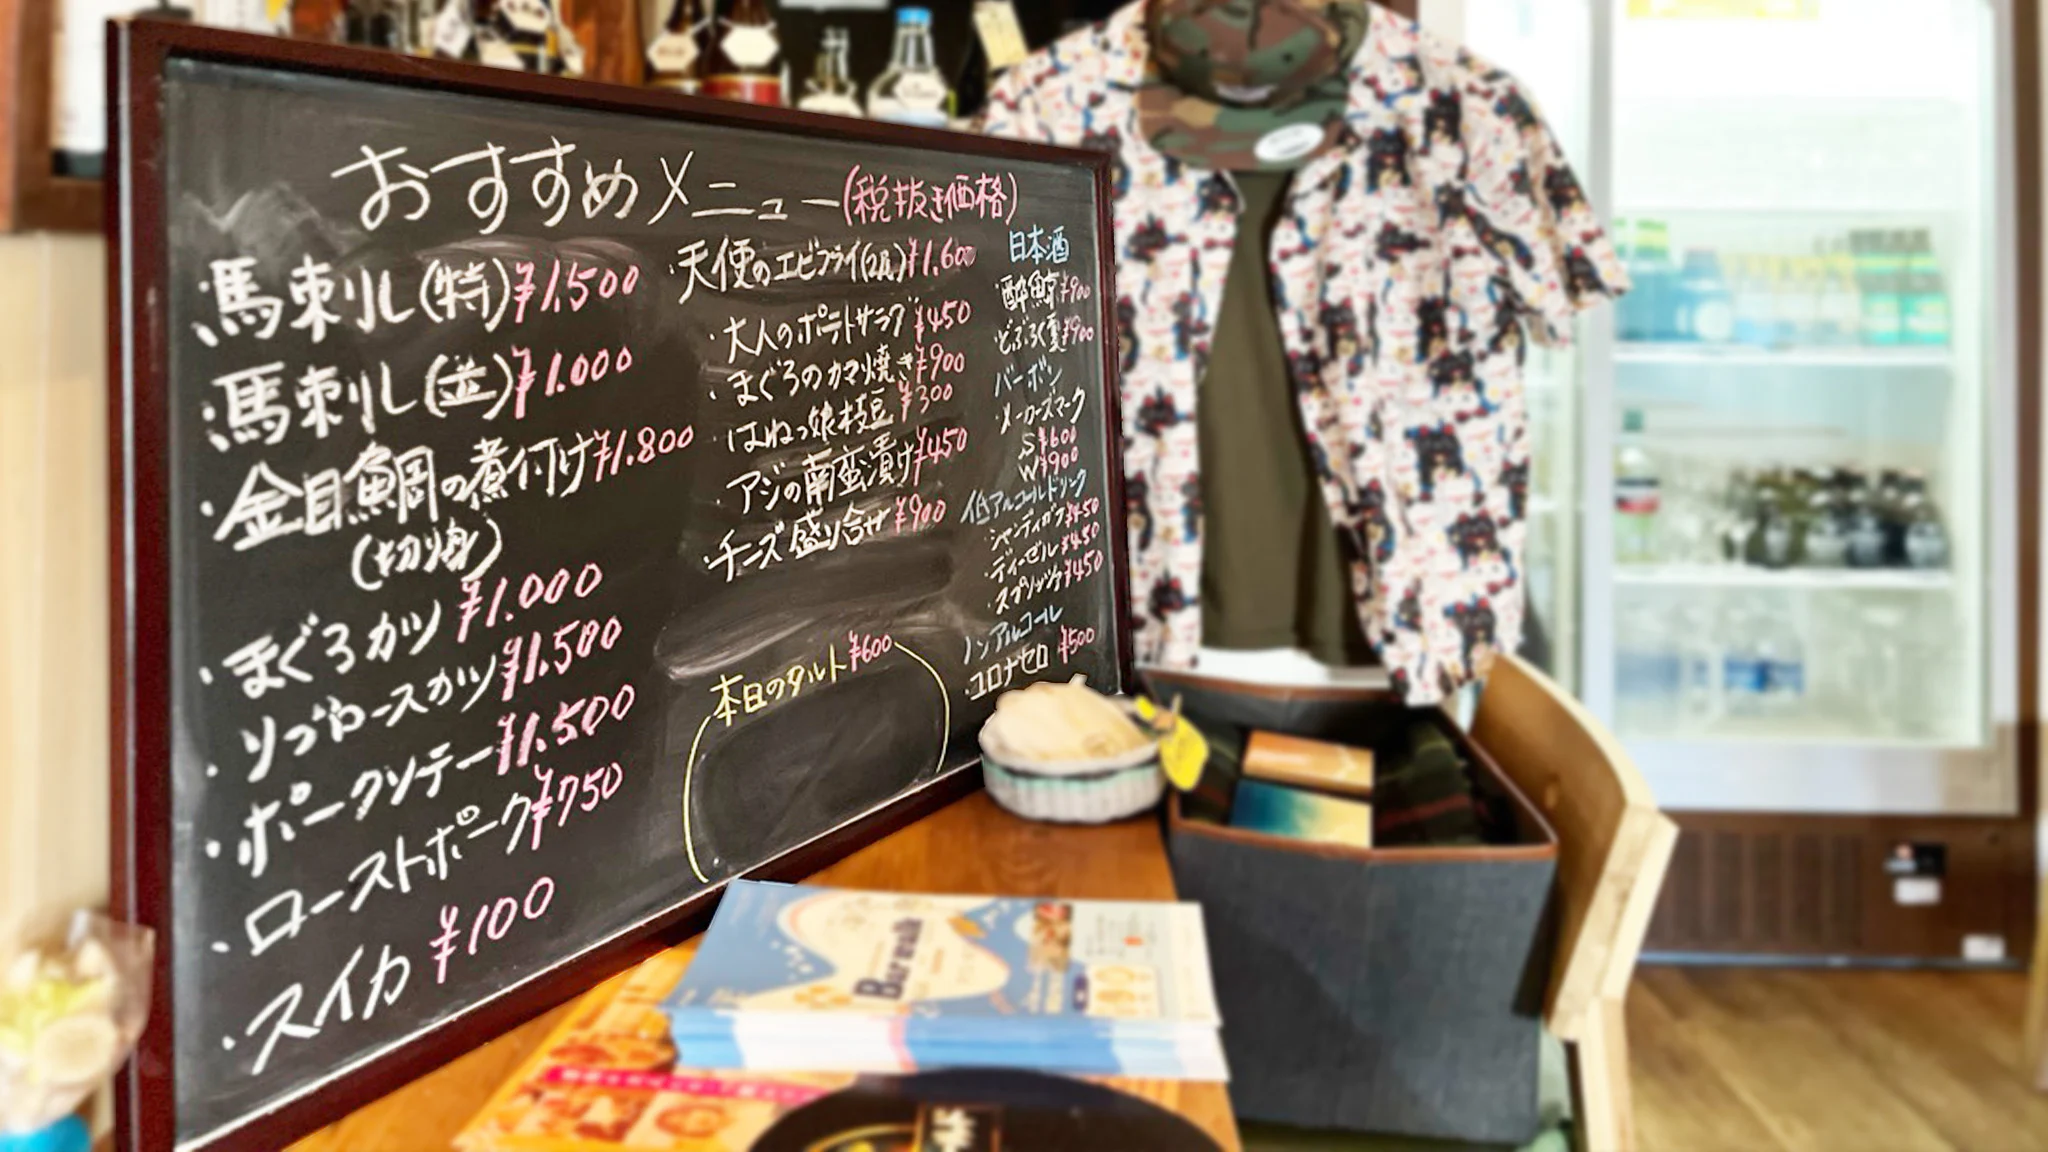 おすすめメニュー(税抜き価格)
・馬刺し(特)¥1.500
・馬刺し(並)¥1.000
・金目鯛の煮付け¥1.800
(切り身)
・まぐろカツ ¥1.000
・リブロースカツ¥1.500
・ポークソテー¥1.500
・ローストポーク¥750
・スイカ ¥100
・天使のエビフライ(2尾)¥1.600
・大人のポテトサラダ ¥450
・まぐろのカマ焼き¥900
・はねっ娘枝豆 ¥300
・アジの南蛮漬け¥450
・チーズ盛り合せ¥900
本日のタルト¥600
日本酒
・酔鯨¥900
・どぶろく ¥900
バーボン
・メーカーズマーク
S¥600
W¥900
低アルコールドリンク
・シャンディガフ¥450
・ディーゼル¥450
・スプリッツァ¥450
ノンアルコール
・コロナゼロ ¥500
Barwalk